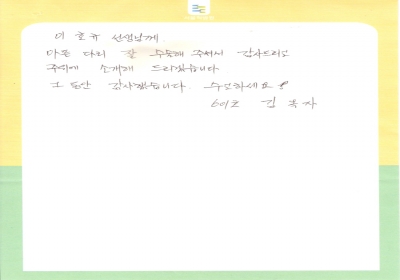 이 호규 선생님께.
아픈 다리 잘 수술해 주셔서 감사드리고
주위에 소개해 드리겠습니다
그 동안 감사했습니다. 수고하세요!
601호 김 옥자